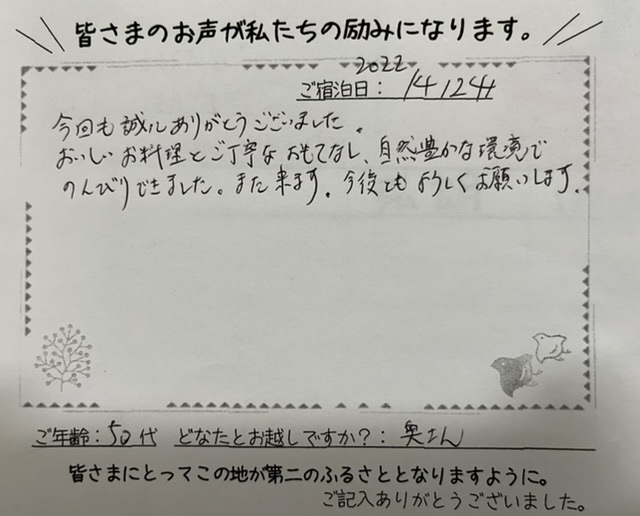 皆さまのお声が私たちの励みになります。
2022
ご宿泊日：
今回も誠にありがとうございました。
おいしいお料理とご丁寧なおもてなし、自然豊かな環境で
のんびりできました。また来ます。今後ともよろしくお願いします。
ご年齢：50代 どなたとお越しですか？：奥さん
皆さまにとってこの地が第二のふるさととなりますように。
ご記入ありがとうございました。